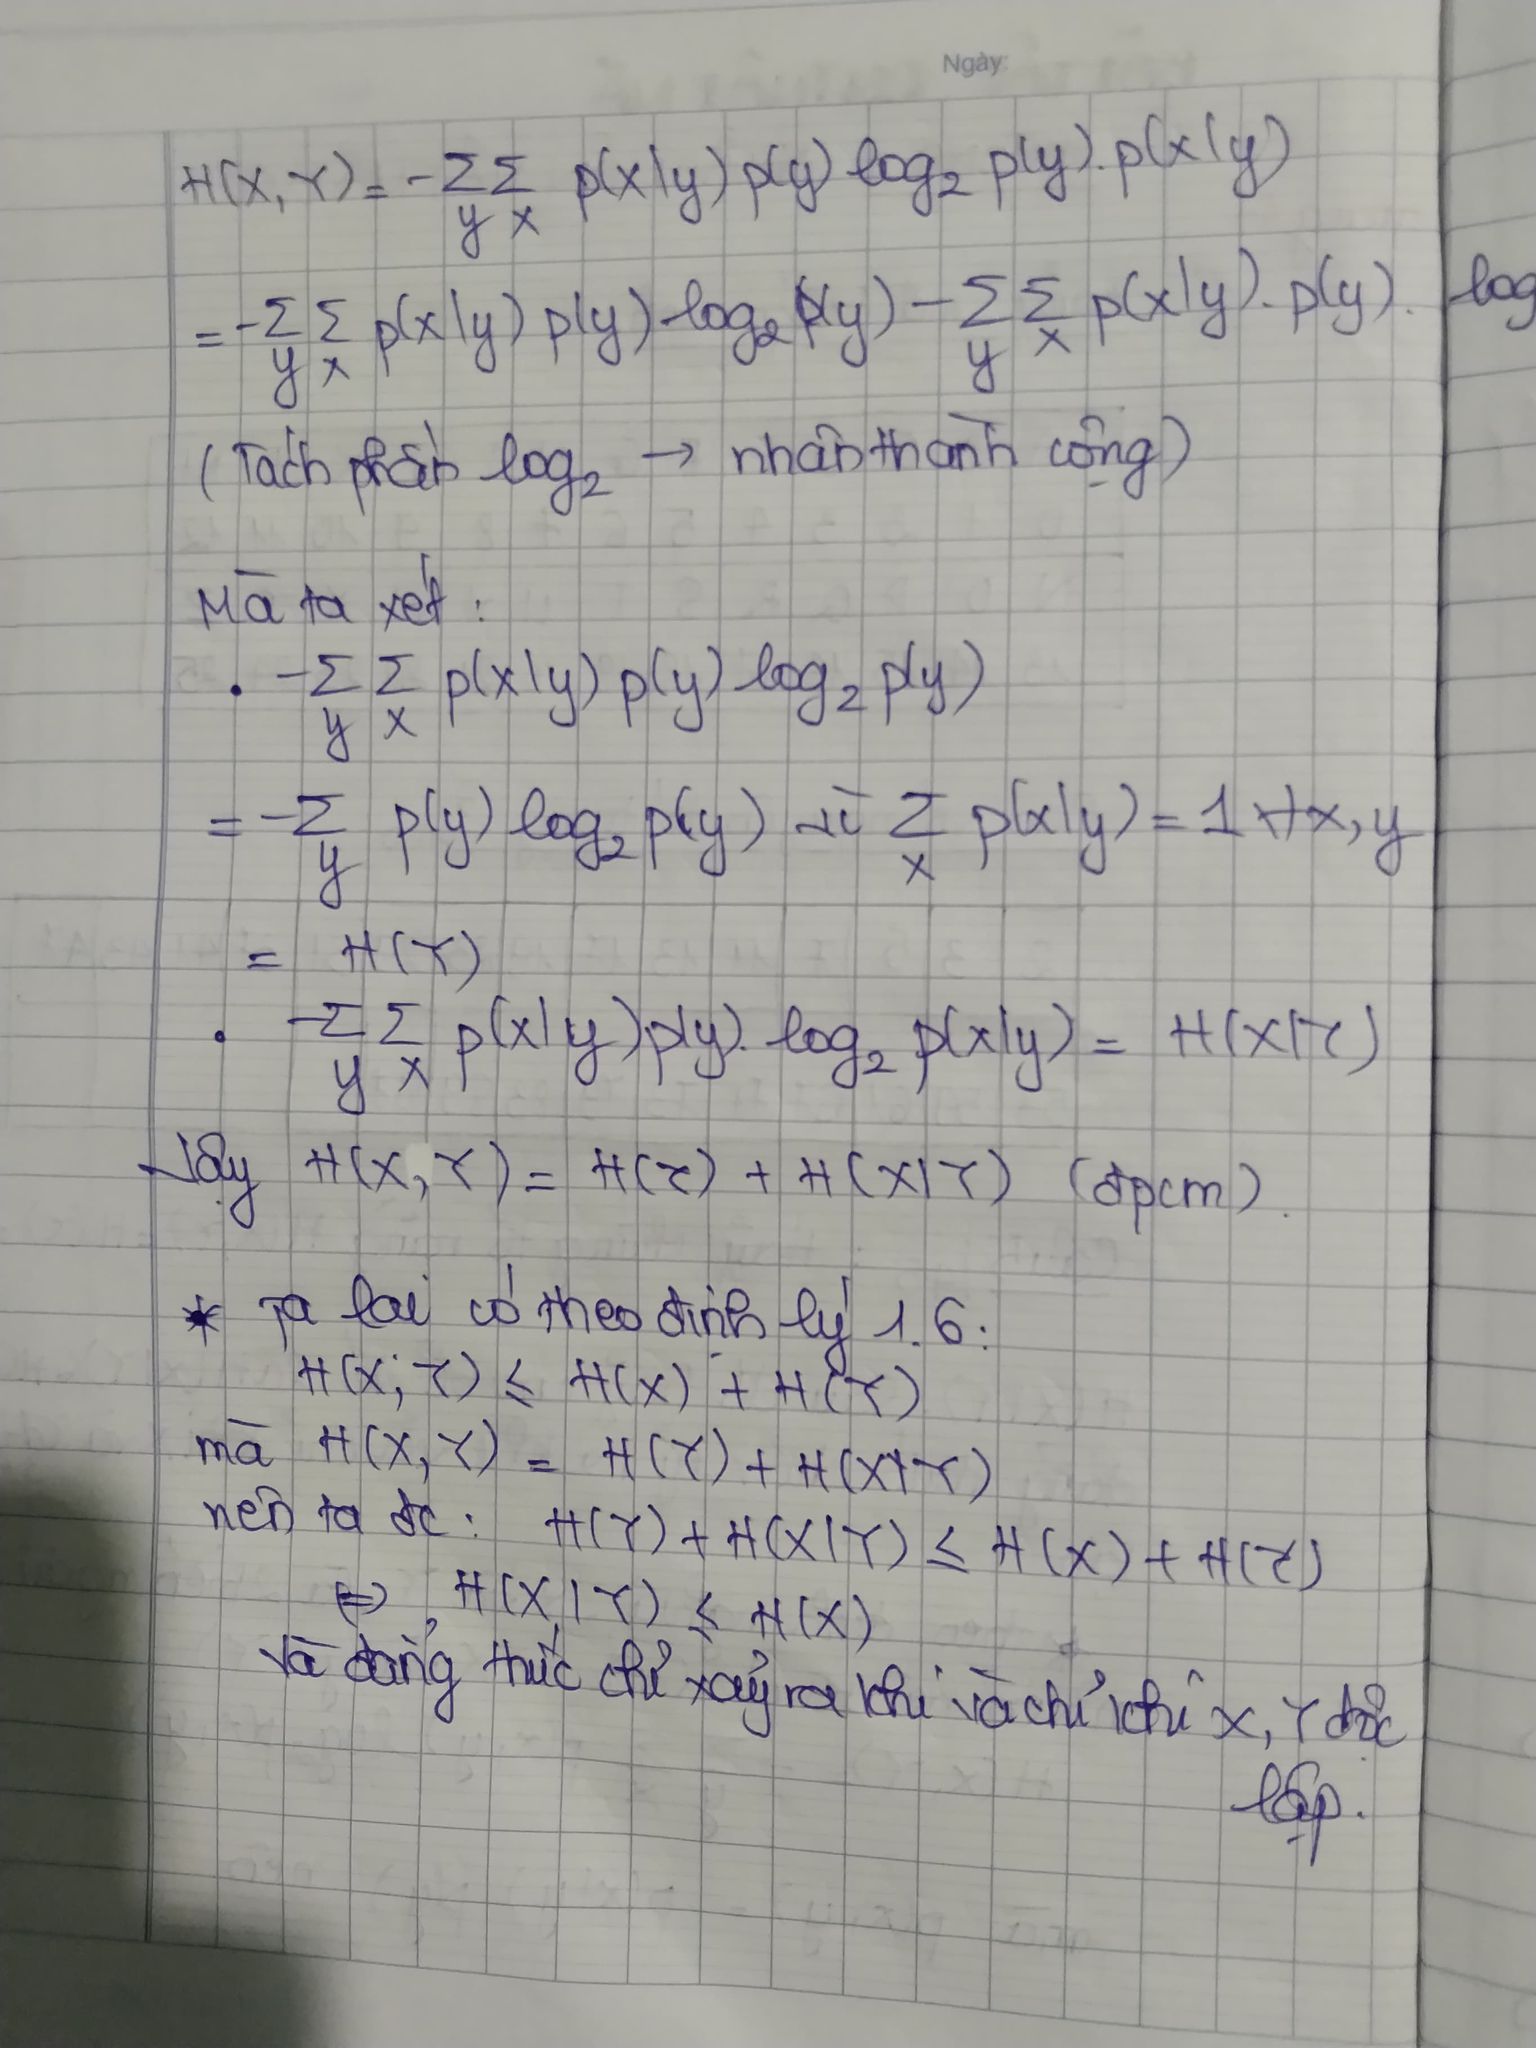 Ngày:
H(X, Y) = - Σ_y Σ_x p(x|y) p(y) log₂ p(y). p(x|y)
= - Σ_y Σ_x p(x|y) p(y) log₂ p(y) - Σ_y Σ_x p(x|y). p(y). log
(Tách phần log₂ → nhân thành cộng)
Mà ta xét :
• - Σ_y Σ_x p(x|y) p(y) log₂ p(y)
= - Σ_y p(y) log₂ p(y) vì Σ_x p(x|y) = 1 ∀x, y
= H(Y)
• - Σ_y Σ_x p(x|y) p(y). log₂ p(x|y) = H(X|Y)
Vậy H(X, Y) = H(Y) + H(X|Y) (đpcm).
* Ta lại có theo định lý 1.6 :
H(X, Y) ≤ H(X) + H(Y)
mà H(X, Y) = H(Y) + H(X|Y)
nên ta đc : H(Y) + H(X|Y) ≤ H(X) + H(Y)
⇔ H(X|Y) ≤ H(X)
và đẳng thức chỉ xảy ra khi và chỉ khi X, Y độc
lập.